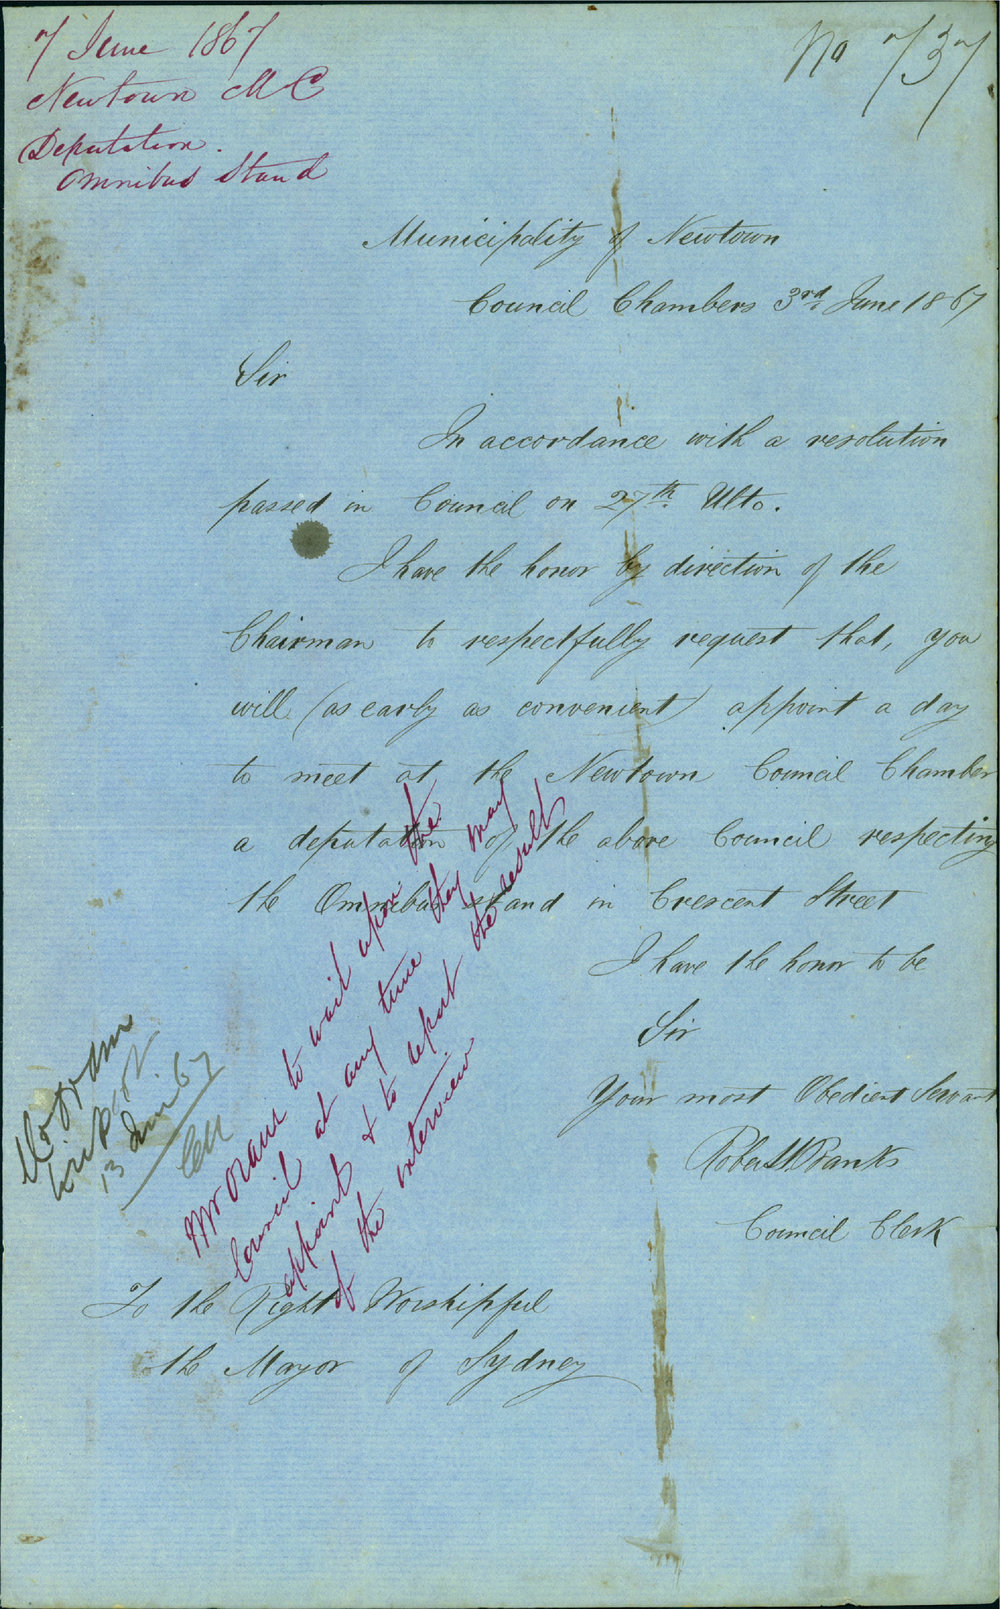 7 June 1867
Newtown M C
Deputation.
Omnibus Stand
No 737
Municipality of Newtown
Council Chambers 3rd June 1867
Sir
In accordance with a resolution
passed in Council on 27th Ulto.
I have the honor by direction of the
Chairman to respectfully request that, you
will (as early as convenient) appoint a day
to meet at the Newtown Council Chamber
a deputation of the above Council respecting
the Omnibus stand in Crescent Street
I have the honor to be
Sir
Your most Obedient Servant
Robert Banks
Council Clerk
To the Right Worshipful
the Mayor of Sydney
Mr Oram to wait upon the
Council at any time they may
appoint & to report the result
of the interview
Mr Oram
13 June 67